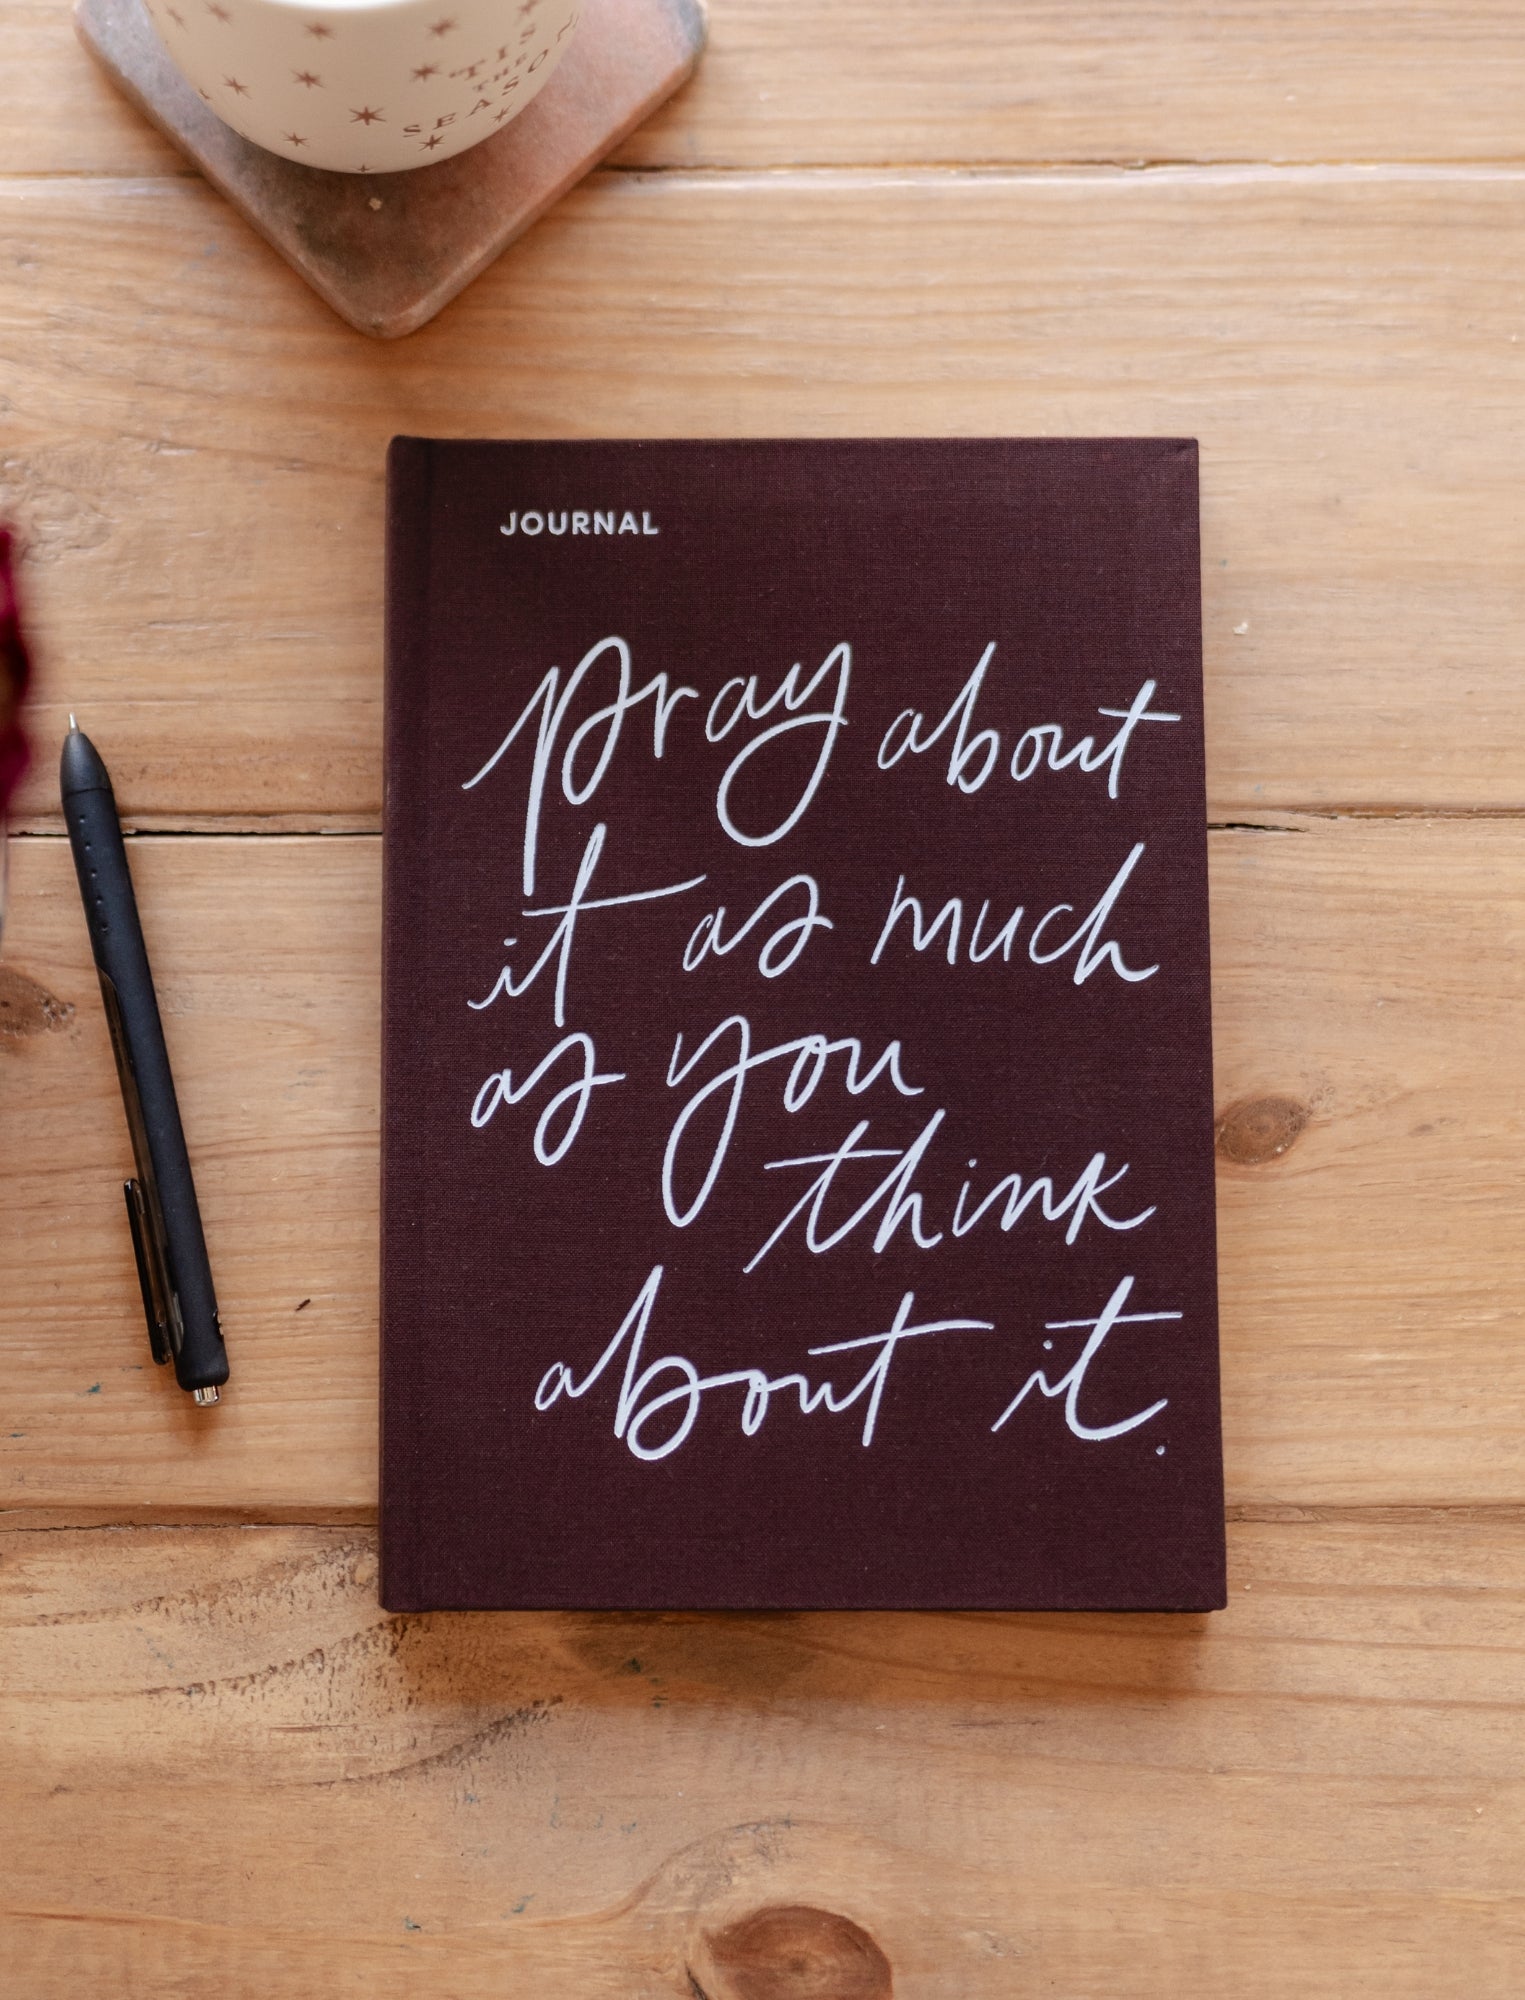 'TIS
THE
SEASON
JOURNAL
pray about
it as much
as you
think
about it.